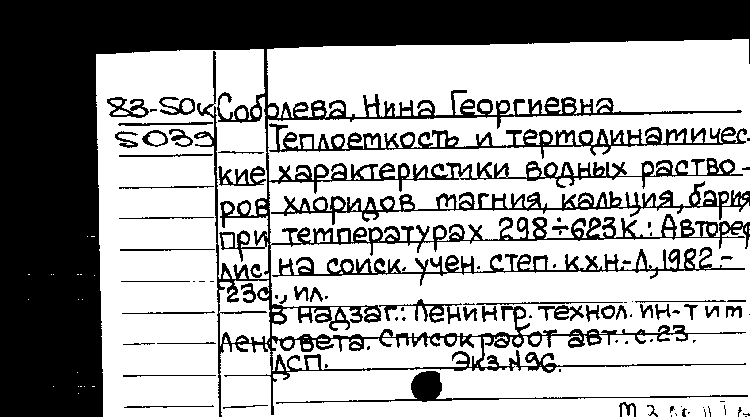 83-50к Соболева, Нина Георгиевна
5039 Теплоемкость и термодинамичес-
кие характеристики водных раство-
ров хлоридов магния, кальция, бария
при температурах 298÷623К.: Автореф
дис. на соиск. учен. степ. к.х.н.-Л., 1982.-
23с., ил.
В надзаг.: Ленингр. технол. ин-т им
Ленсовета. Список работ авт.: с.23.
ДСП. Экз.№96.